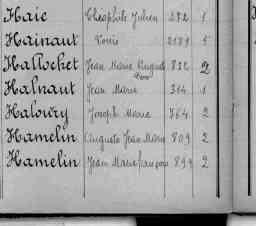 Haie Théophile Julien 282 1
Hainaut Louis 2189 5
Hallochet Jean Marie August 822 2
Halnaut Jean Marie 314 1
Halowry Joseph Marie 764 2
Hamelin Auguste Jean Marie 809 2
Hamelin Jean Marie François 899 2